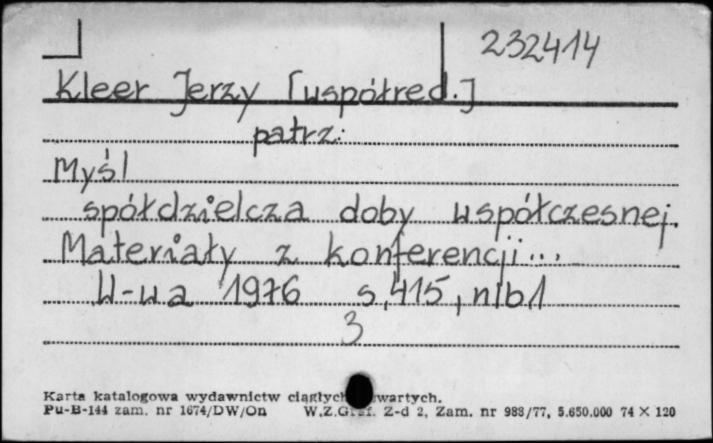 232414
Kleer Jerzy [współred.]
patrz:
Myśl
spółdzielcza doby współczesnej.
Materiały z konferencji...
W-wa 1976 s. 415, nlb 1
3
Karta katalogowa wydawnictw ciągłych
Pu-B-144 zam. nr 1674/DW/On W.Z.Graf. Z-d 2, Zam. nr 988/77, 5.650.000 74 X 120